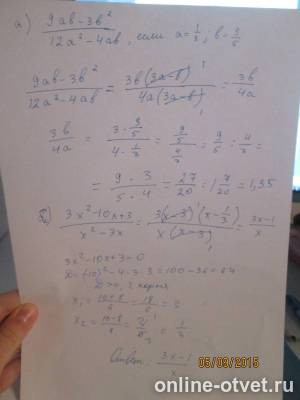 а) (9ab - 3b²)/(12a² - 4ab), если a = 1/3; b = 3/5
(9ab - 3b²)/(12a² - 4ab) = 3b(3a-b)¹/4a(3a-b)₁ = 3b/4a
3b/4a = (3 · 3/5)/(4 · 1/3) = (9/5)/(4/3) = 9/5 : 4/3 =
= (9 · 3)/(5 · 4) = 27/20 = 1 7/20 = 1,35
(3x² - 10x + 3)/(x² - 3x) = 3(x-3)¹(x - 1/3)/x(x-3)₁ = (3x-1)/x
3x² - 10x + 3 = 0
D = (-10)² - 4 · 3 · 3 = 100 - 36 = 64
D > 0, 2 корня
x₁ = (10+8)/6 = 18/6 = 3
x₂ = = 1/3
Ответ: (3x-1)/x
05/09/2015
online-otvet.ru